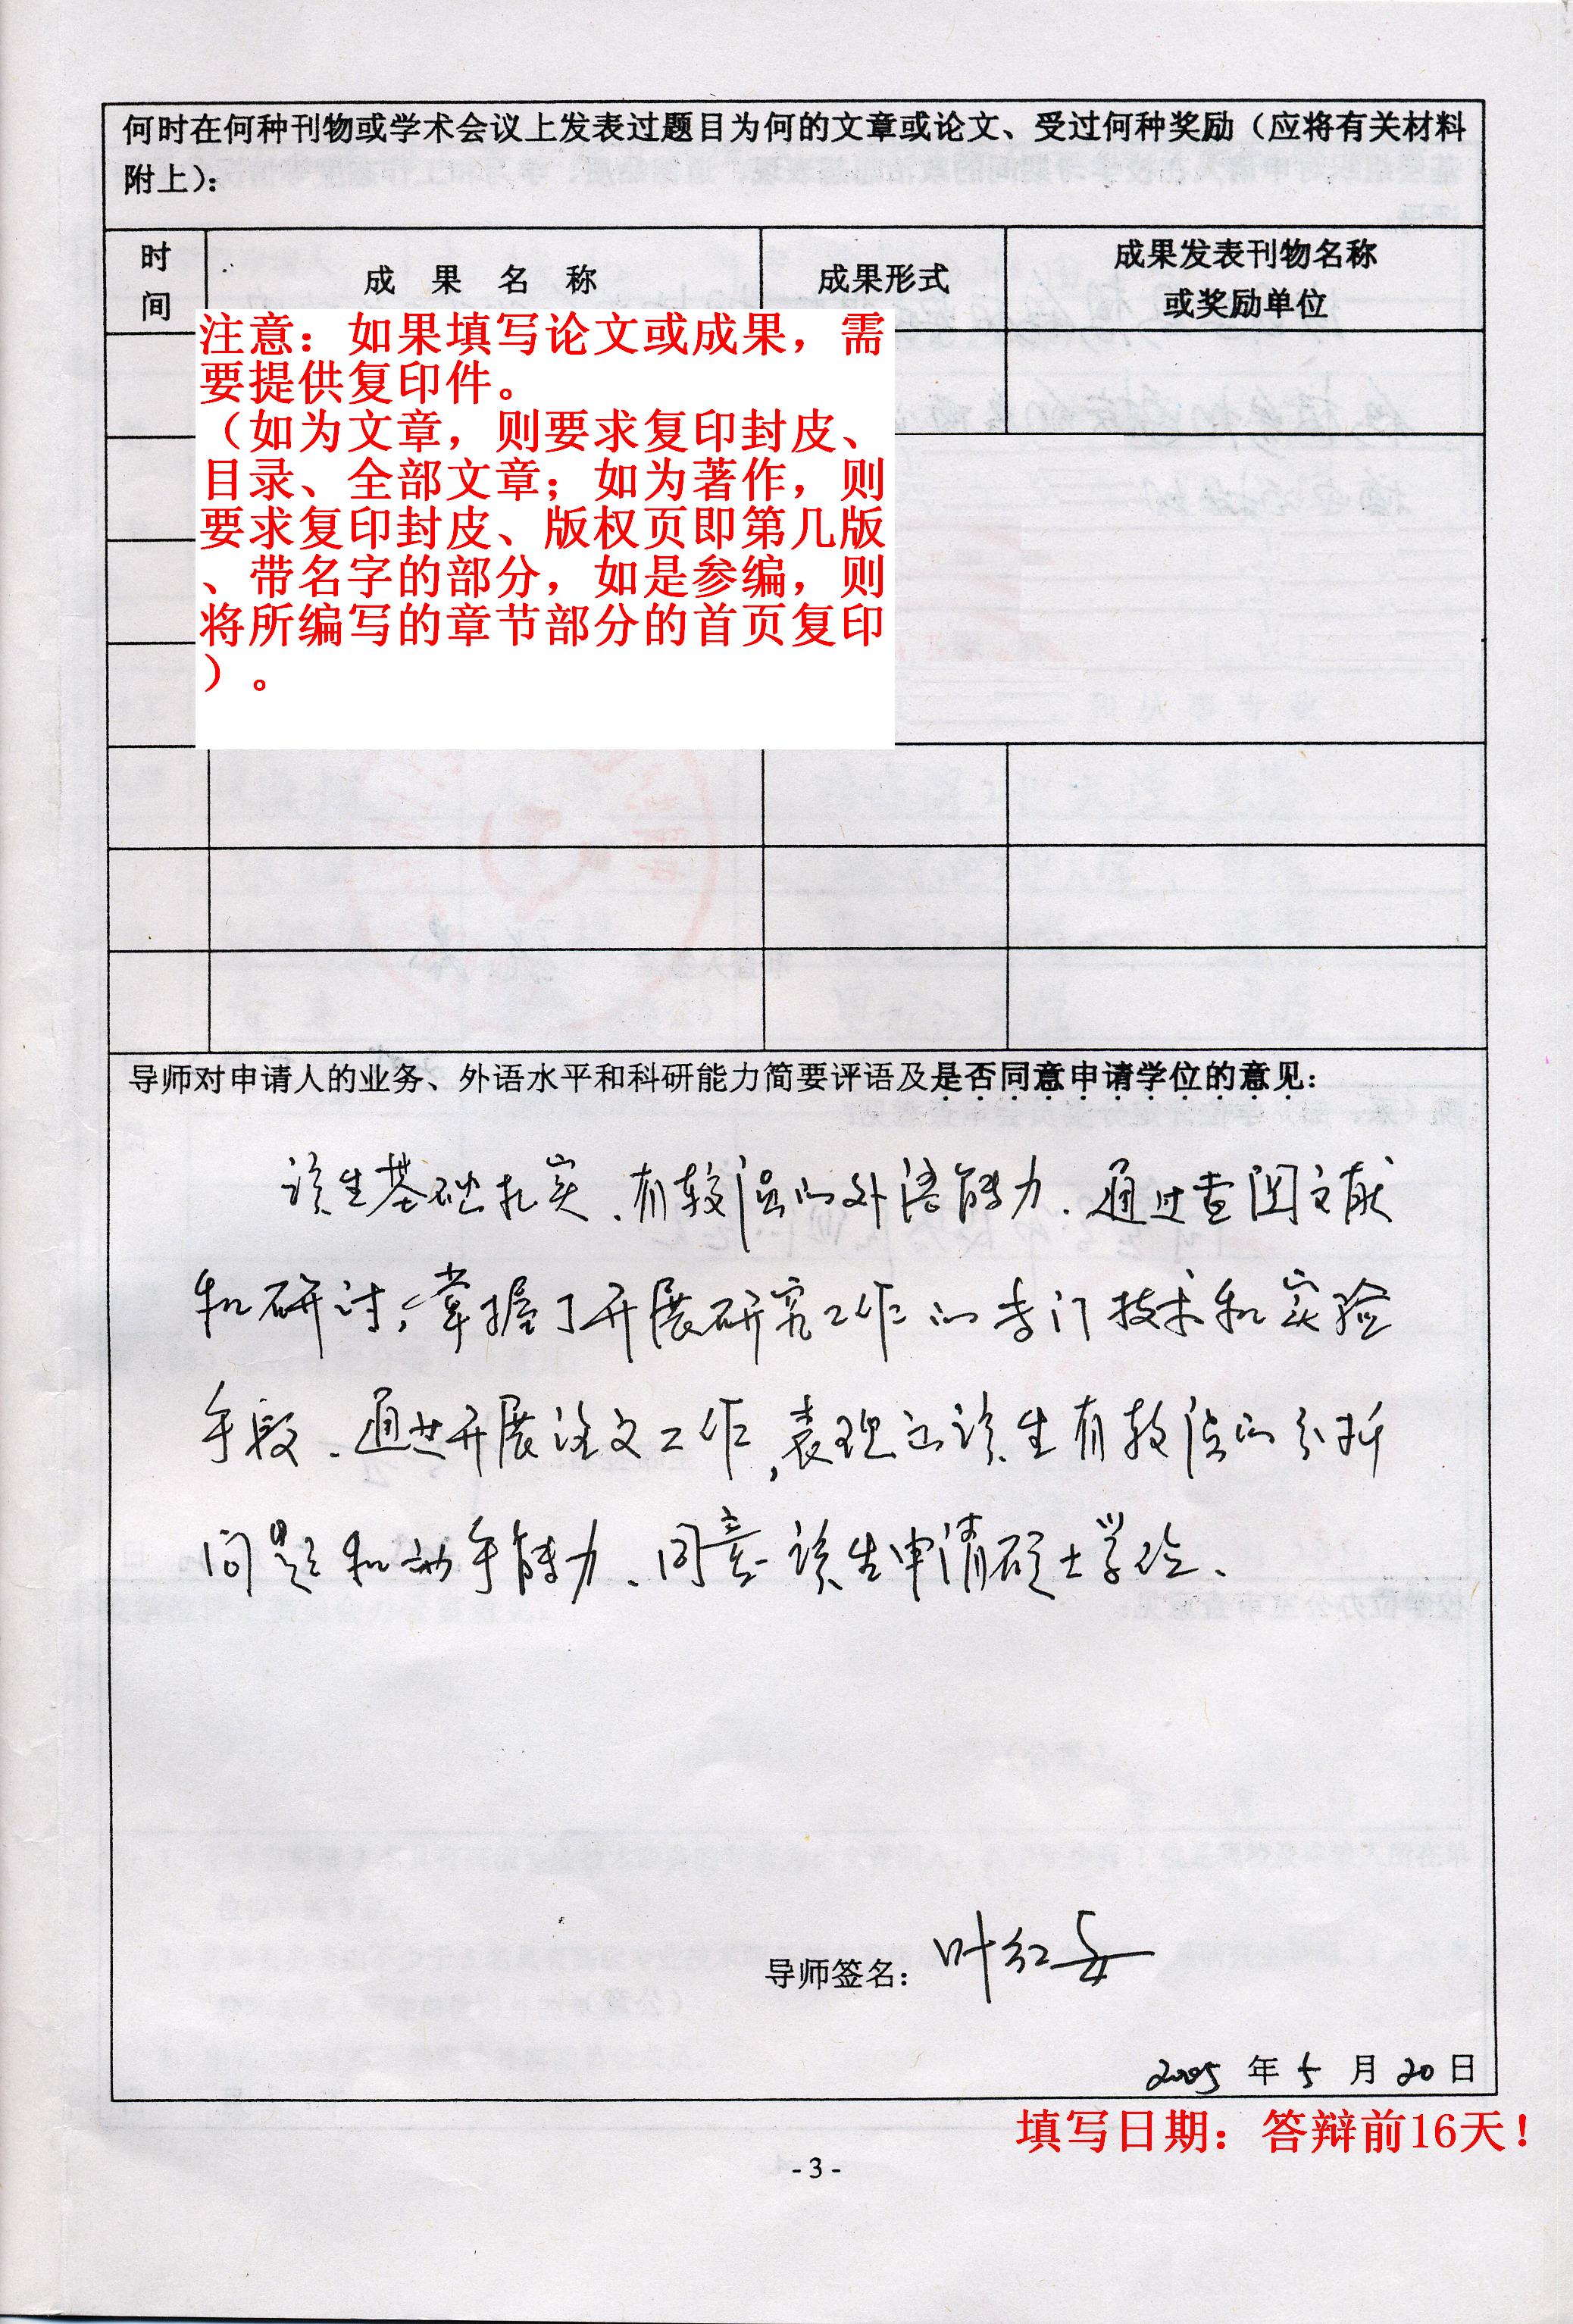 何时在何种刊物或学术会议上发表过题目为何的文章或论文、受过何种奖励（应将有关材料
附上）：
时间
成果名称
成果形式
成果发表刊物名称
或奖励单位
注意：如果填写论文或成果，需
要提供复印件。
（如为文章，则要求复印封皮、
目录、全部文章；如为著作，则
要求复印封皮、版权页即第几版
、带名字的部分，如是参编，则
将所编写的章节部分的首页复印
）。
导师对申请人的业务、外语水平和科研能力简要评语及是否同意申请学位的意见：
该生基础扎实、有较强的外语能力．通过查阅文献
和研讨，掌握了开展研究工作的专门技术和实验
手段．通过开展论文工作，表现出该生有较强的分析
问题和动手能力、同意该生申请硕士学位、
导师签名：叶红
2005 年 5 月 20 日
填写日期：答辩前16天！
- 3 -